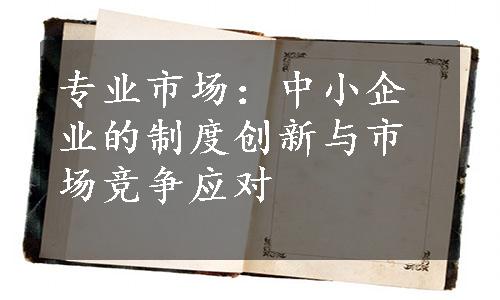 专业市场：中小企
业的制度创新与市
场竞争应对